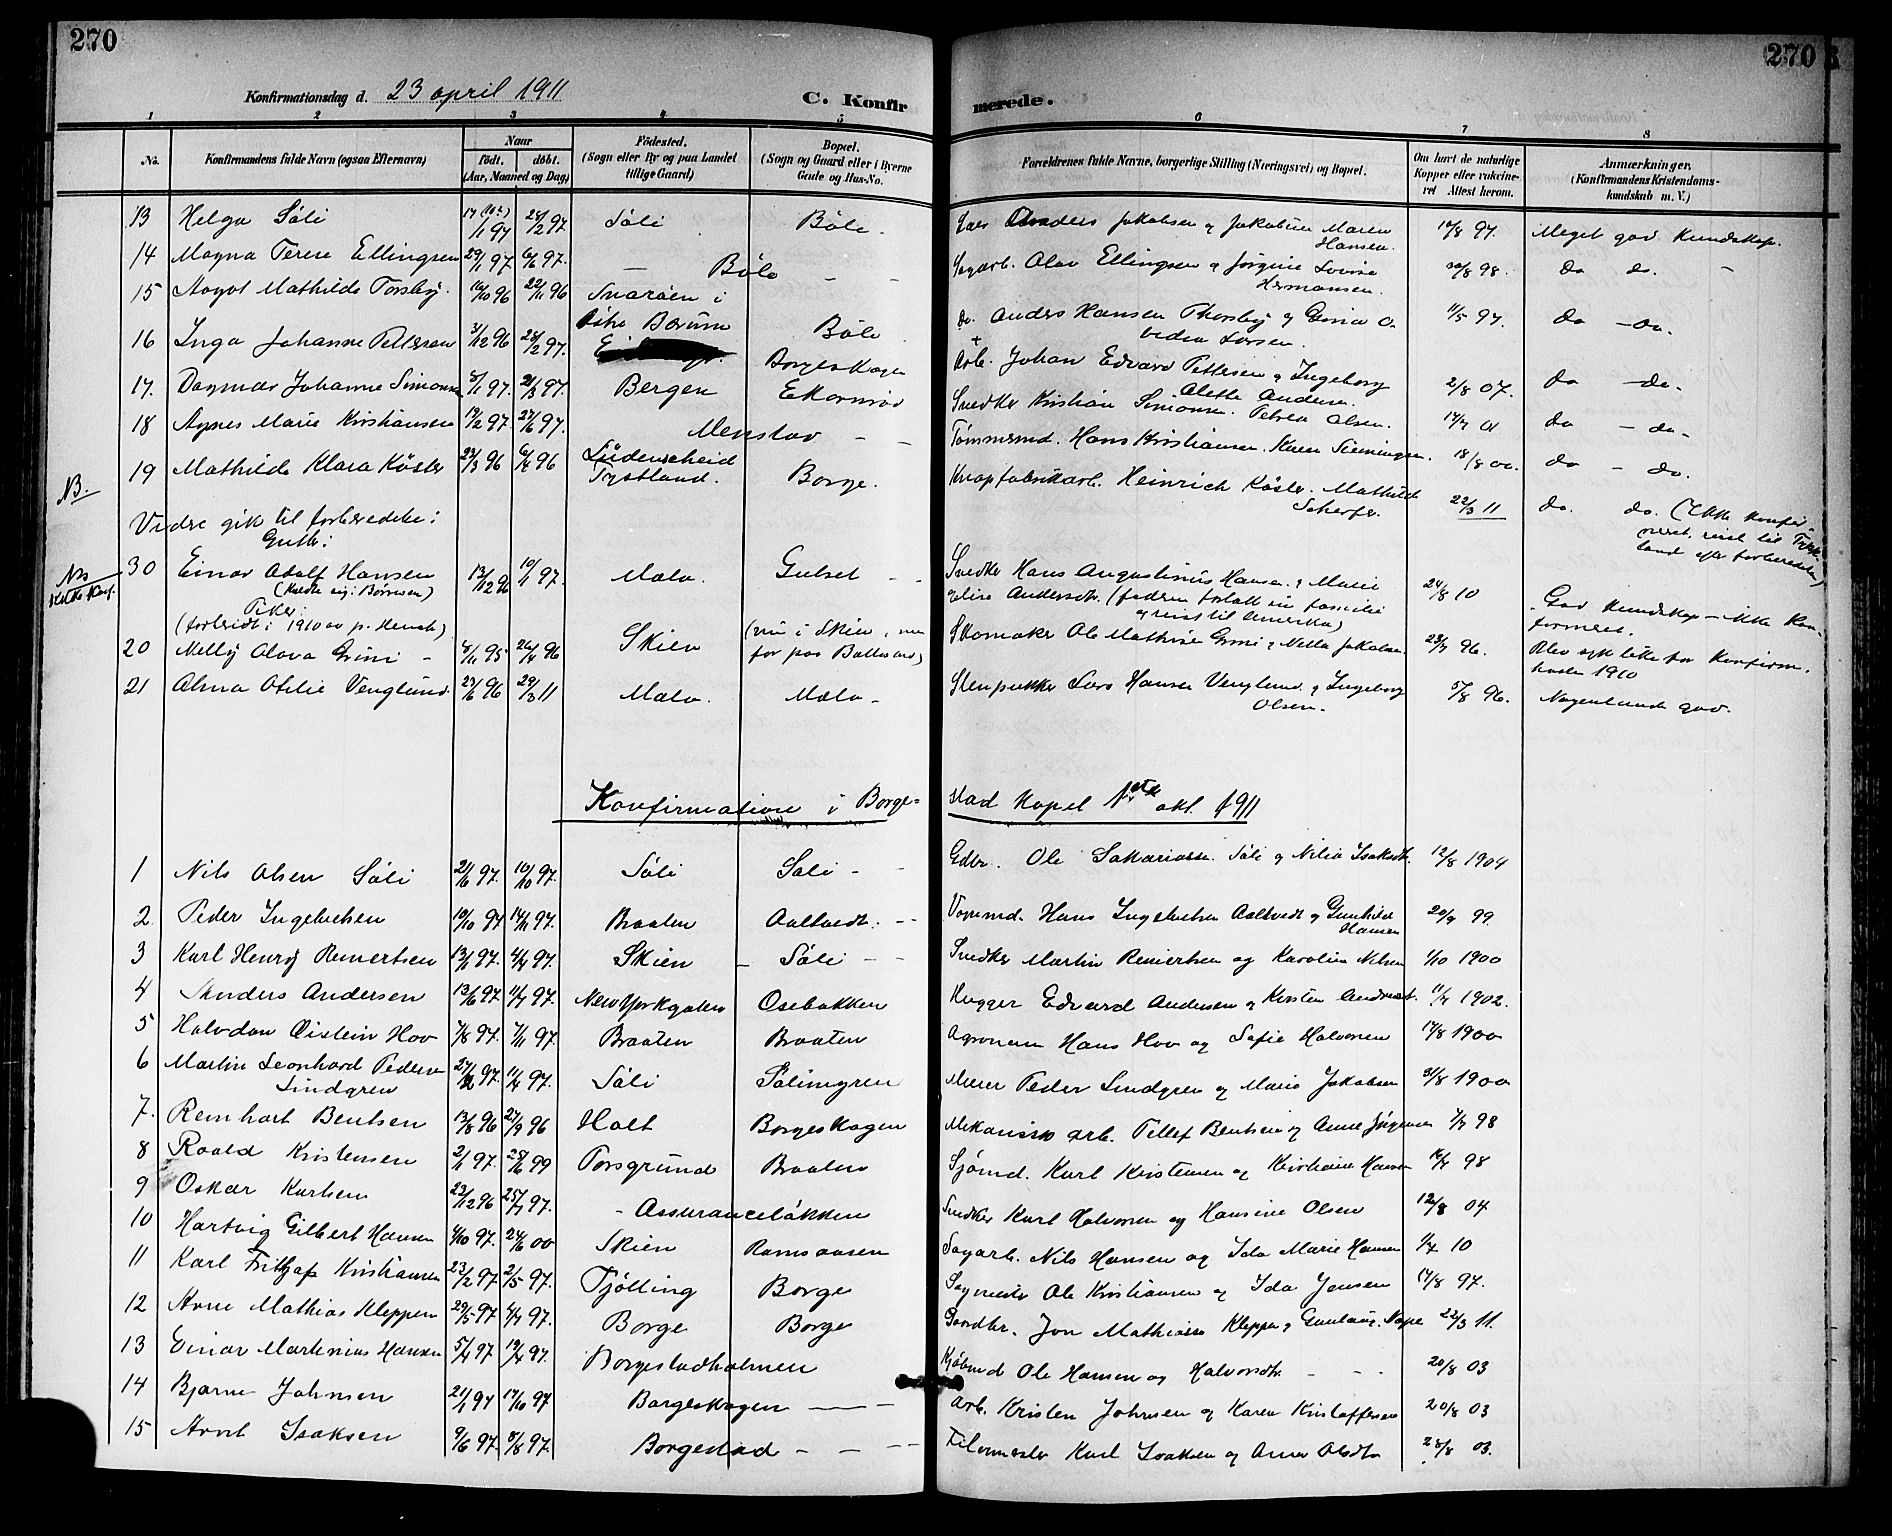 270
270
Konfirmationsdag d. 23 april 1911
C. Konfir
merede.
1 2 3 4 5 6 7 8
No. Konfirmandens fulde Navn (ogsaa Efternavn)
Naar
født. døbt.
(Aar, Maaned og Dag)
Födested.
(Sogn eller By og paa Landet
tillige Gaard)
Bopæl.
(Sogn og Gaard eller i Byerne
Gade og Hus-No.
Forældrenes fulde Navne, borgerlige Stilling (Næringsvei) og Bopæl.
Om havt de naturlige
Kopper eller vakcine-
ret Attest herom.
Anmærkninger.
(Konfirmandens Kristendoms-
kundskab m. V.)
13 Helga Søli 28/2 97 Søli Böle Anders Jakobsen og Jakobine Maren
Hansen. 14/8 97. Meget god Kundskap.
14 Magna Terese Ellingsen 29/1 97 6/6 97. — Böle — — Sagarb. Olav Ellingsen og Jørgine Lovise
Hermansen. 20/8 98. do do. —
15 Aagot Mathilde Torsby 16/10 96 22/11 96 Snarøen i
Østre Bærum Böle do. Anders Hansen Thorsby og Gina O-
vedia Larsen. 11/5 97. do — do.
16 Inga Johanne Pettersen 3/12 96 28/2 97. Borgeskogen Arb. Johan Edvard Pettersen og Ingeborg
Alette Andersn. 2/8 07. do — do.
17. Dagmar Johanne Simonsen 8/1 97. 21/3 97. Bergen Ekornrød Snedker Kristian Simonsen. Petrea Olsen. 14/7 01 do — do.
18 Agnes Marie Kristiansen 19/2 97 27/6 97. Menstad — — Tømmermd. Hans Kristiansen. Karen Simingsen. 18/8 00. do — do.
NB.
19 Mathilde Klara Köster 23/3 96 6/4 96 Lüdenscheid
Tyskland. Borge. Knapfabrikarb. Heinrich Köster. Mathilde
Scherfer. 22/3 11 do. do. (Ikke konfir-
meret, reist til Tysk-
land efter forberedelsen)
Videre gik til forberedelse:
Gutter:
NB
ikke Konf.
30 Einar Adolf Hansen 13/12 96 10/1 97. Mæla. Gulset - - Snedker Hans Augustinus Hansen og Marie
(kaldte sig: Børresen) Elise Andersdtr. (faderen forlatt sin familie
og reist til Amerika) 24/8 10 God kundskap — ikke kon-
firmeret.
Piker:
(forberedt i 1910 av p. Hench)
20 Nelly Alava Grini - 8/11 95 26/4 96 Skien (nu i Skien, Skomaker Ole Mathias Grini og Netta Jakobsen. 23/7 96. Blev syk like før Konfirm.
høsten 1910
21 Alma Otelie Venglund 23/6 96 29/3 11 Mæla. Mæla - Stenpukker Lars Hansen Venglund og Ingeborg
Olsen. 5/8 96. Nogenlunde god.
Konfirmation i Borge-
stad Kapel 1ste okt. 1911
1 Nils Olsen Søli 21/6 97. 10/10 97. Søli Søli - Gdbr. Ole Sakariasse. Søli og Nilia Isaksdtr. 12/8 1904
2. Peder Ingebretsen 10/10 97 14/11 97. Braaten Aaltvedt. - - Vognmd. Hans Ingebretsen Aaltvedt og Gunhild
Hansen 20/9 99.
3 Karl Henry Reinertsen 13/1 97. 4/4 97. Skien — Søli - - Snedker Martin Reinertsen og Karoline Nilsen 1/10 1900
4 Anders Andersen 13/6 97 11/7 97. New Yorkgaten Osebakken Hugger Edvard Andersen og Kirsten Andreasdt. 11/7 1902.
5 Halvdan Øistein Hov 7/8 97. 7/11 97. Braaten Braaten Agronom Hans Hov og Sofie Halvorsen 17/8 1900
6 Martin Leonhard Pedersen
Lindgren 97. 11/4 97. Søli Sølimyren Murer Peder Lindgren og Marie Jakobsen 31/8 1900
7. Reinhart Bentsen 13/8 96 27/9 96 Holt Borgeskogen Mekanisk arb. Tellef Bentsen og Anne Jørgensen 7/7 98
8 Roald Kristensen 2/1 97. 25/6 99 Porsgrund Braaten Sjömd. Karl Kristensen og Kristiane Hansen 16/7 98
9 Oskar Karlsen 23/12 96 25/7 97. - Assuranceløkken Snedker Karl Halvorsen og Hansine Olsen 12/8 04
10 Hartvig Gilbert Hansen 4/10 97. 24/6 00 Skien Ramsaasen Sagarb. Nils Hansen og Ida Marie Hansen 1/7 10
11 Karl Fritjof Kristiansen 23/2 97. 2/5 97. Tjølling Borge Sagmester Ole Kristiansen og Ida Jensen 17/8 97.
12 Arne Mathias Kleppen 29/5 97 4/7 97. Borge Borge Gaardbr. Jon Mathiasse Kleppen og Gunlaug Nape 22/3 11.
13 Einar Martinius Hansen 5/4 97 19/4 97. Borgestadholmen Kjøbmd Ole Hansen og Halvorsdtr. - - - 20/8 03
14 Bjarne Johnsen 21/1 97 17/10 97 Borgeskogen — — Arb. Kristen Johnsen og Karen Kristoffersen 20/8 03
15 Arvit Isaksen 9/6 97. 8/8 97. Borgestad - - - - Karl Isaksen og Anna Olsdtr 28/8 03.